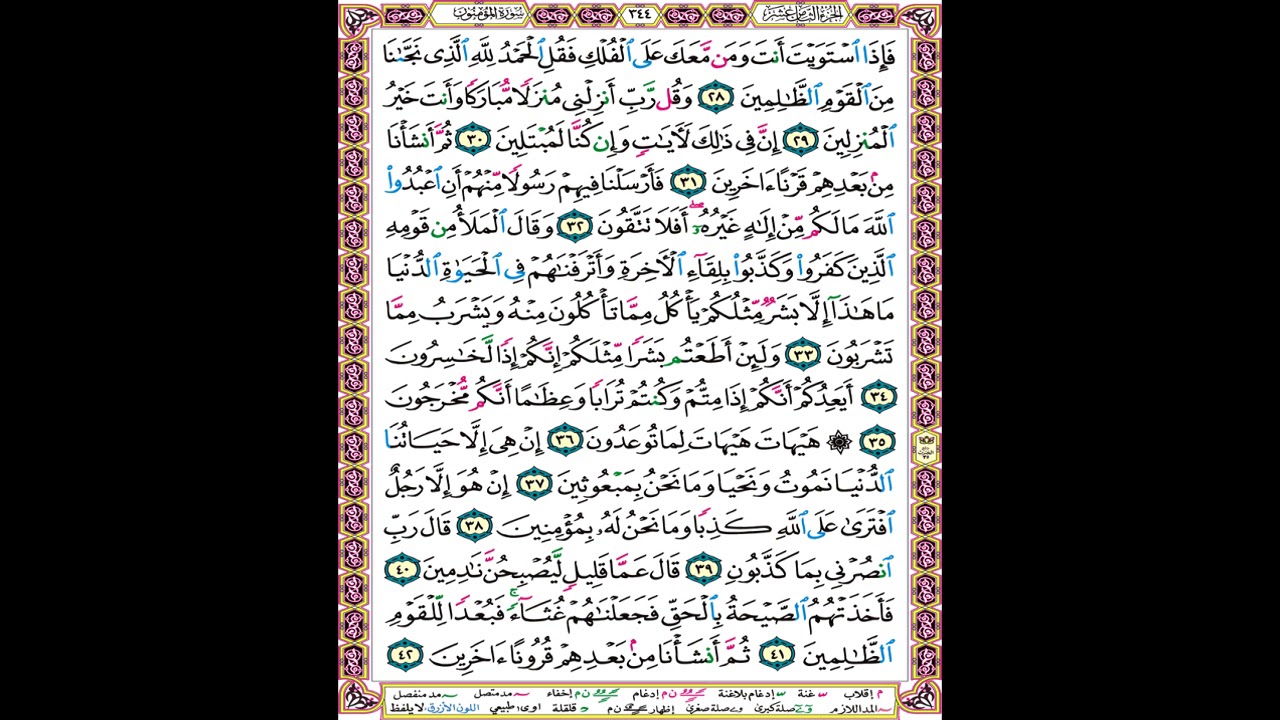 سورة المؤمنون ٣٤٤ الجزء الثامن عشر
فَإِذَا ٱسْتَوَيْتَ أَنتَ وَمَن مَّعَكَ عَلَى ٱلْفُلْكِ فَقُلِ ٱلْحَمْدُ لِلَّهِ ٱلَّذِى نَجَّىٰنَا
مِنَ ٱلْقَوْمِ ٱلظَّٰلِمِينَ ٢٨ وَقُل رَّبِّ أَنزِلْنِى مُنزَلًا مُّبَارَكًا وَأَنتَ خَيْرُ
ٱلْمُنزِلِينَ ٢٩ إِنَّ فِى ذَٰلِكَ لَـَٔايَٰتٍ وَإِن كُنَّا لَمُبْتَلِينَ ٣٠ ثُمَّ أَنشَأْنَا
مِنۢ بَعْدِهِمْ قَرْنًا ءَاخَرِينَ ٣١ فَأَرْسَلْنَا فِيهِمْ رَسُولًا مِّنْهُمْ أَنِ ٱعْبُدُوا۟
ٱللَّهَ مَا لَكُم مِّنْ إِلَٰهٍ غَيْرُهُۥٓ ۖ أَفَلَا تَتَّقُونَ ٣٢ وَقَالَ ٱلْمَلَأُ مِن قَوْمِهِ
ٱلَّذِينَ كَفَرُوا۟ وَكَذَّبُوا۟ بِلِقَآءِ ٱلْـَٔاخِرَةِ وَأَتْرَفْنَٰهُمْ فِى ٱلْحَيَوٰةِ ٱلدُّنْيَا
مَا هَٰذَآ إِلَّا بَشَرٌ مِّثْلُكُمْ يَأْكُلُ مِمَّا تَأْكُلُونَ مِنْهُ وَيَشْرَبُ مِمَّا
تَشْرَبُونَ ٣٣ وَلَئِنْ أَطَعْتُم بَشَرًا مِّثْلَكُمْ إِنَّكُمْ إِذًا لَّخَٰسِرُونَ
٣٤ أَيَعِدُكُمْ أَنَّكُمْ إِذَا مِتُّمْ وَكُنتُمْ تُرَابًا وَعِظَٰمًا أَنَّكُم مُّخْرَجُونَ
٣٥ ۞ هَيْهَاتَ هَيْهَاتَ لِمَا تُوعَدُونَ ٣٦ إِنْ هِىَ إِلَّا حَيَاتُنَا
ٱلدُّنْيَا نَمُوتُ وَنَحْيَا وَمَا نَحْنُ بِمَبْعُوثِينَ ٣٧ إِنْ هُوَ إِلَّا رَجُلٌ
ٱفْتَرَىٰ عَلَى ٱللَّهِ كَذِبًا وَمَا نَحْنُ لَهُۥ بِمُؤْمِنِينَ ٣٨ قَالَ رَبِّ
ٱنصُرْنِى بِمَا كَذَّبُونِ ٣٩ قَالَ عَمَّا قَلِيلٍ لَّيُصْبِحُنَّ نَٰدِمِينَ ٤٠
فَأَخَذَتْهُمُ ٱلصَّيْحَةُ بِٱلْحَقِّ فَجَعَلْنَٰهُمْ غُثَآءً ۚ فَبُعْدًا لِّلْقَوْمِ
ٱلظَّٰلِمِينَ ٤١ ثُمَّ أَنشَأْنَا مِنۢ بَعْدِهِمْ قُرُونًا ءَاخَرِينَ ٤٢
م إقلاب غنة إدغام بلاغنة ن م إدغام ن م إخفاء مد متصل مد منفصل
المد اللازم صلة كبرى صلة صغرى إظهار ن م قلقلة اوى: طبيعي اللون الأزرق: لا يلفظ